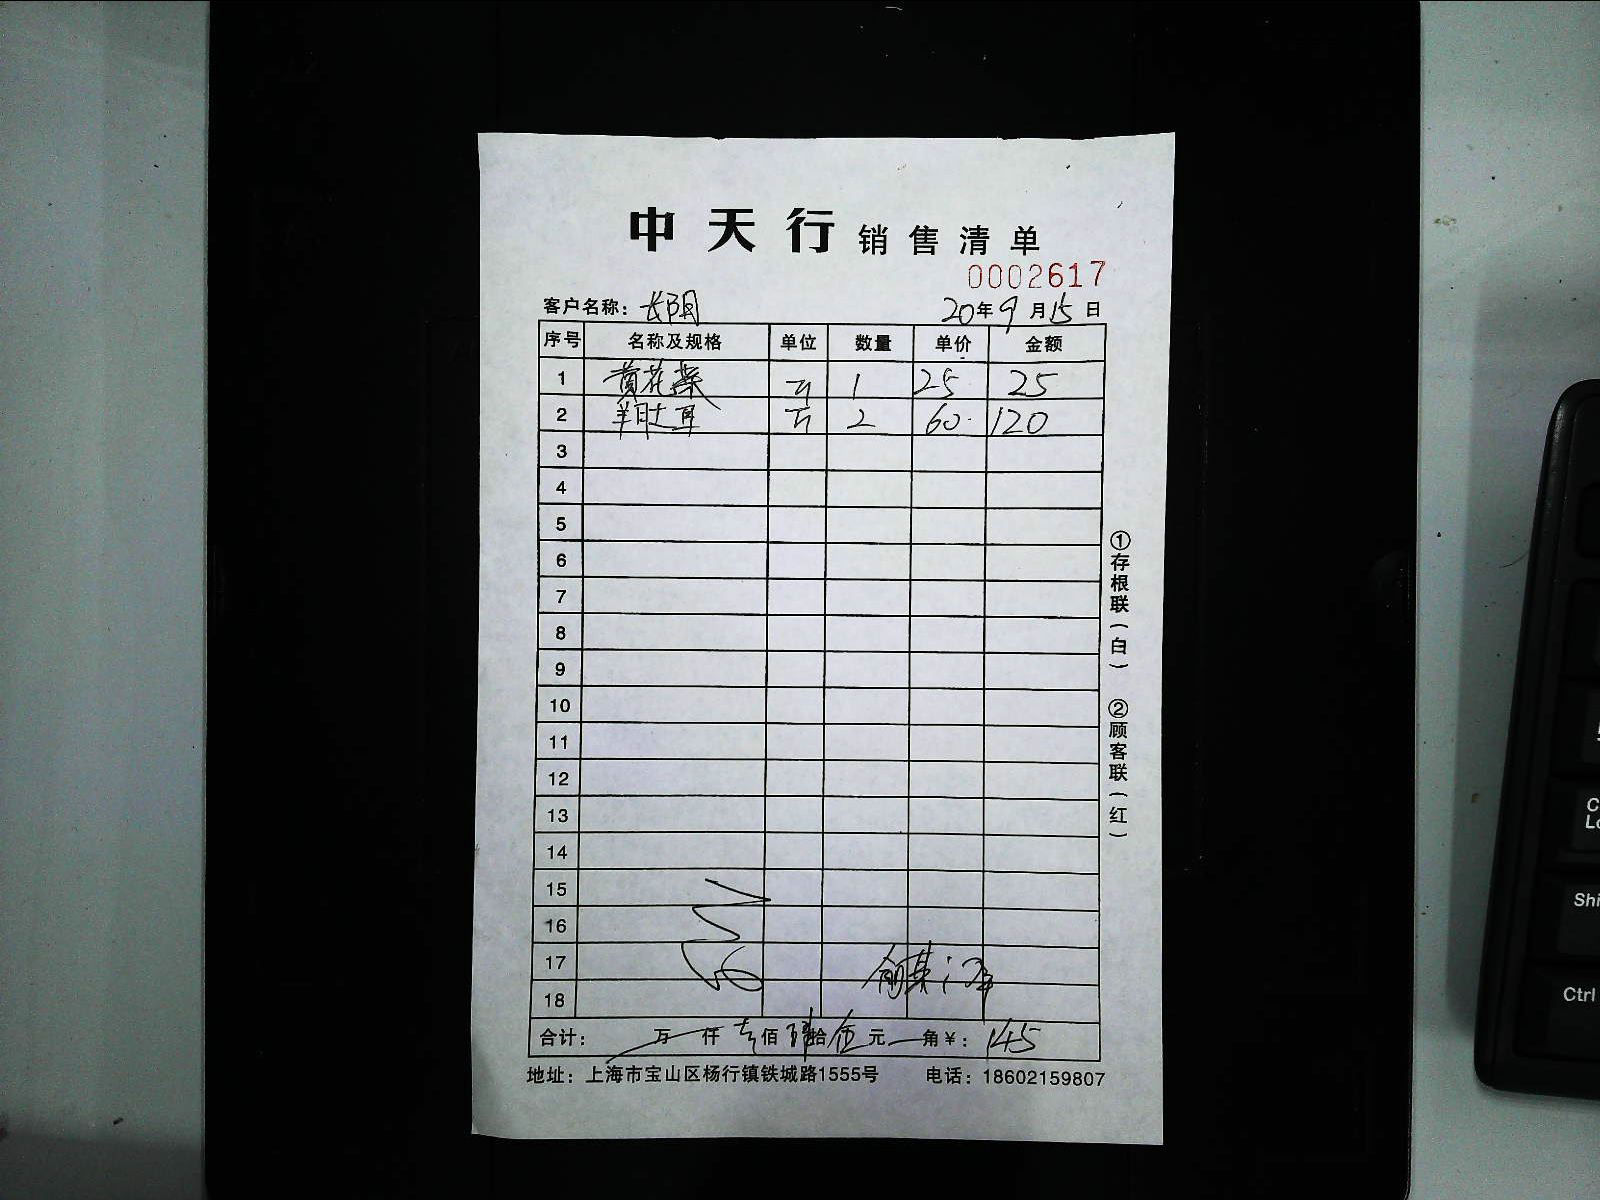 中天行 销售清单
0002617
客户名称: 长阴 20年9月15日
序号 名称及规格 单位 数量 单价 金额
1 黄花菜 斤 1 25 25
2 羊肚耳 斤 2 60 120
3
4
5
6
7
8
9
10
11
12
13
14
15
16
17
18
合计: 万 仟 壹佰 肆拾 伍元 角¥: 145
地址: 上海市宝山区杨行镇铁城路1555号 电话: 18602159807
①存根联(白) ②顾客联(红)
Shi
Ctrl